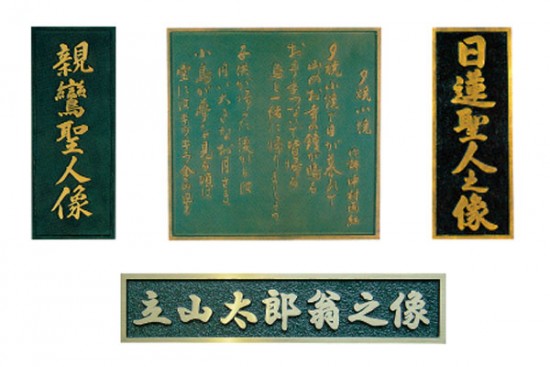 親鸞聖人像
夕焼小焼
作詞 中村雨紅
夕焼小焼で日が暮れて
山のお寺の鐘が鳴る
お手々つないで皆帰る
烏と一緒に帰りましょう
子供が帰った後からは
円い大きなお月さま
小鳥が夢を見る頃は
空にはキラキラ金の星
日蓮聖人之像
立山太郎翁之像